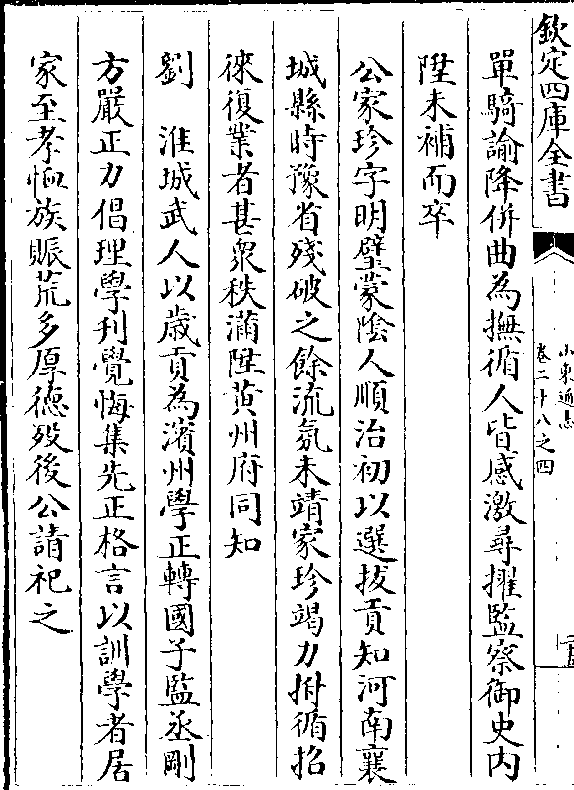 欽定四庫全書
山東通志
卷二十八之四
單騎諭降併曲為撫循人皆感激尋擢監察御史内
陞未補而卒
公家珍字明璧蒙隂人順治初以選拔貢知河南襄
城縣時豫省殘破之餘流氛未靖家珍竭力拊循招
徠復業者甚衆秩滿陞黄州府同知
劉　淮城武人以歳貢為濱州學正轉國子監丞剛
方嚴正力倡理學刋覺悔集先正格言以訓學者居
家至孝恤族賑荒多厚德歿後公請祀之